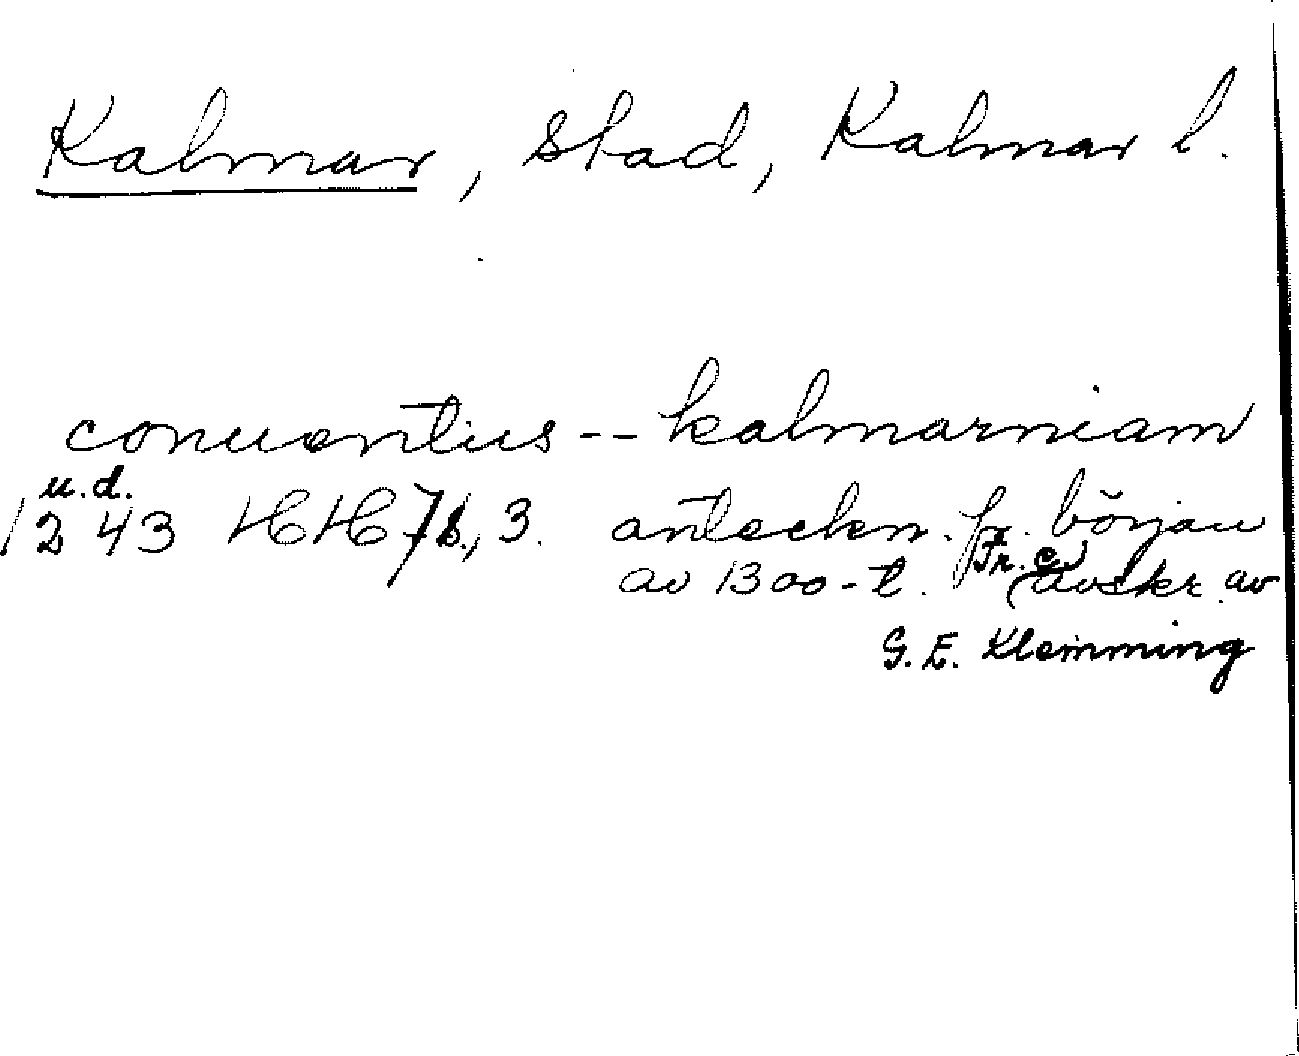 Kalmar, stad, Kalmar l.
conuentus -- kalmarniam
u.d.
1243 HH 7b, 3. anteckn. fr. början
av 1300-t. (avskr. av
G. E. Klemming